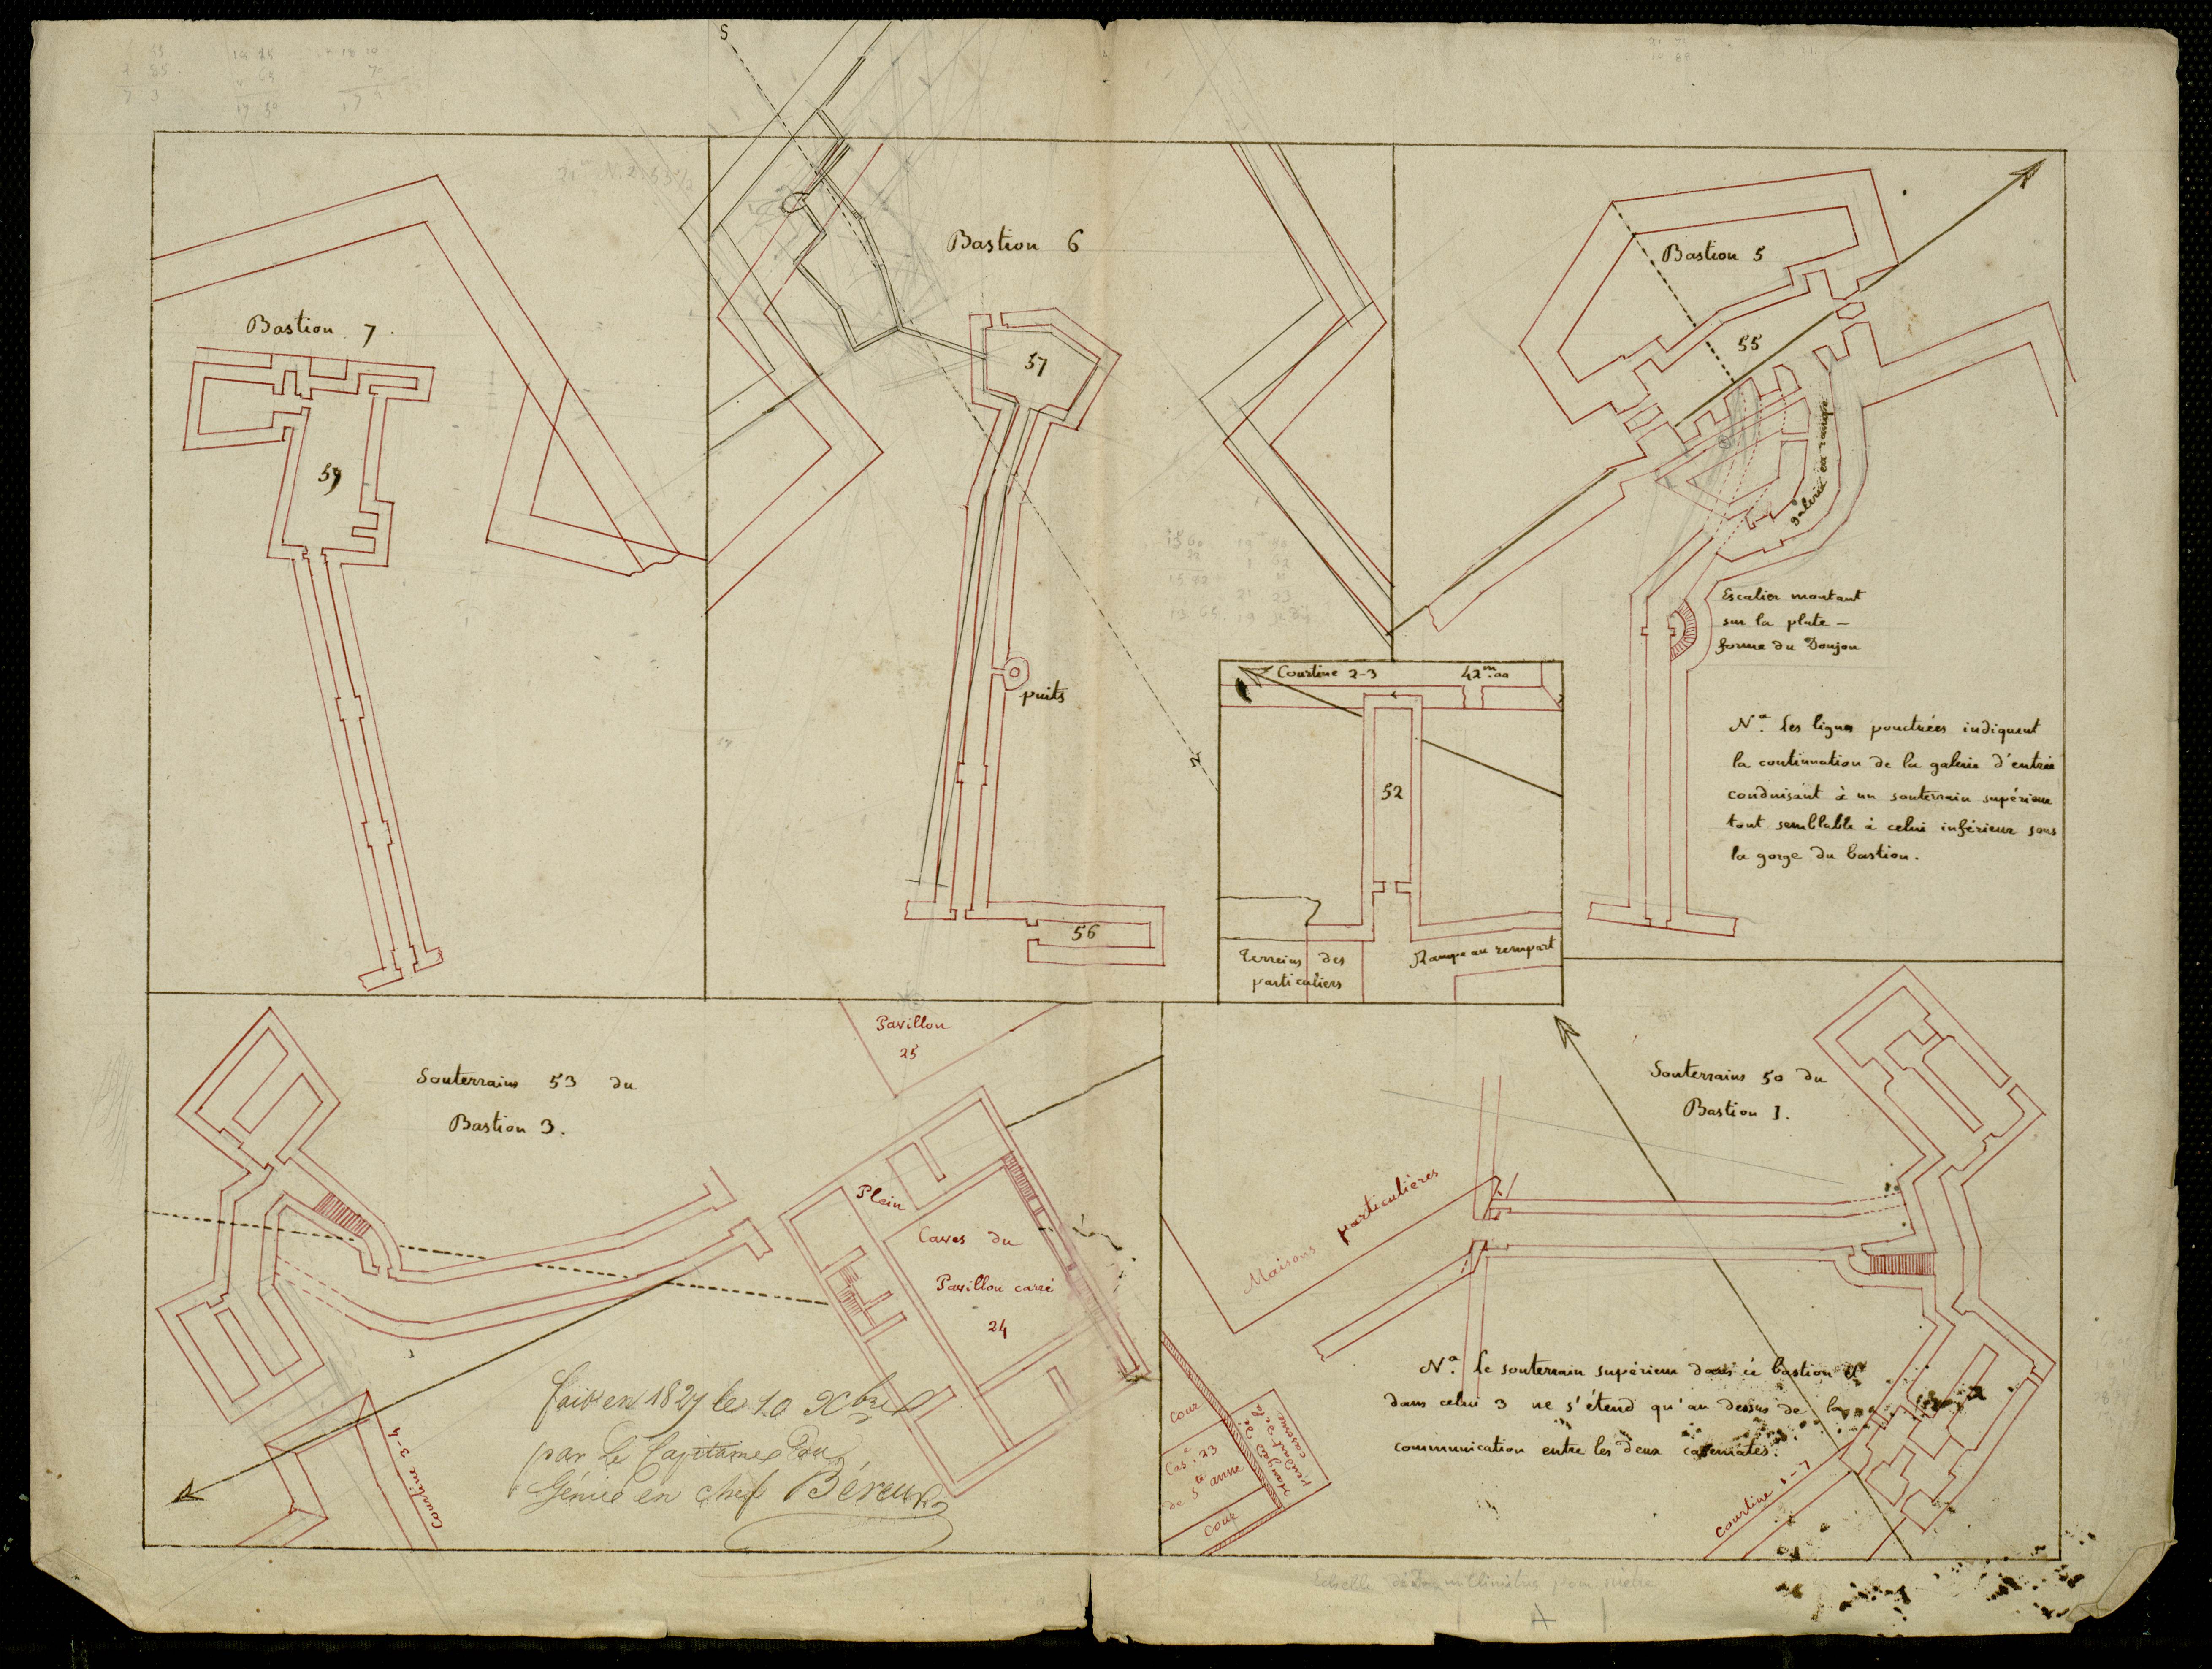 S
Bastion 7.
59
Bastion 6
57
puits
56
N
Bastion 5
55
galerie en rampe
Escalier montant
sur la plate-
forme du Donjon
Nª. Les lignes ponctuées indiquent
la continuation de la galerie d'entrée
conduisant à un souterrain supérieur
tout semblable à celui inférieur sous
la gorge du bastion.
Courtine 2-3 42m.00
52
Terreins des
particuliers
Rampe au rempart
Souterrains 53 du
Bastion 3.
Pavillon
25
Plein
Caves du
Pavillon carré
24
Courtine 3-4
fait en 1827 le 10 Xbre
par Le Capitaine du
Génie en chef Béreur
Souterrains 50 du
Bastion 1.
Maisons particulières
Nª. Le souterrain supérieur dans ce bastion et
dans celui 3 ne s'étend qu'au dessus de la
communication entre les deux casemates.
Cour
Cas. 23
de Ste anne
Cour
caserne
Courtine 1-7
Echelle de Deux millimètres pour mètre
A